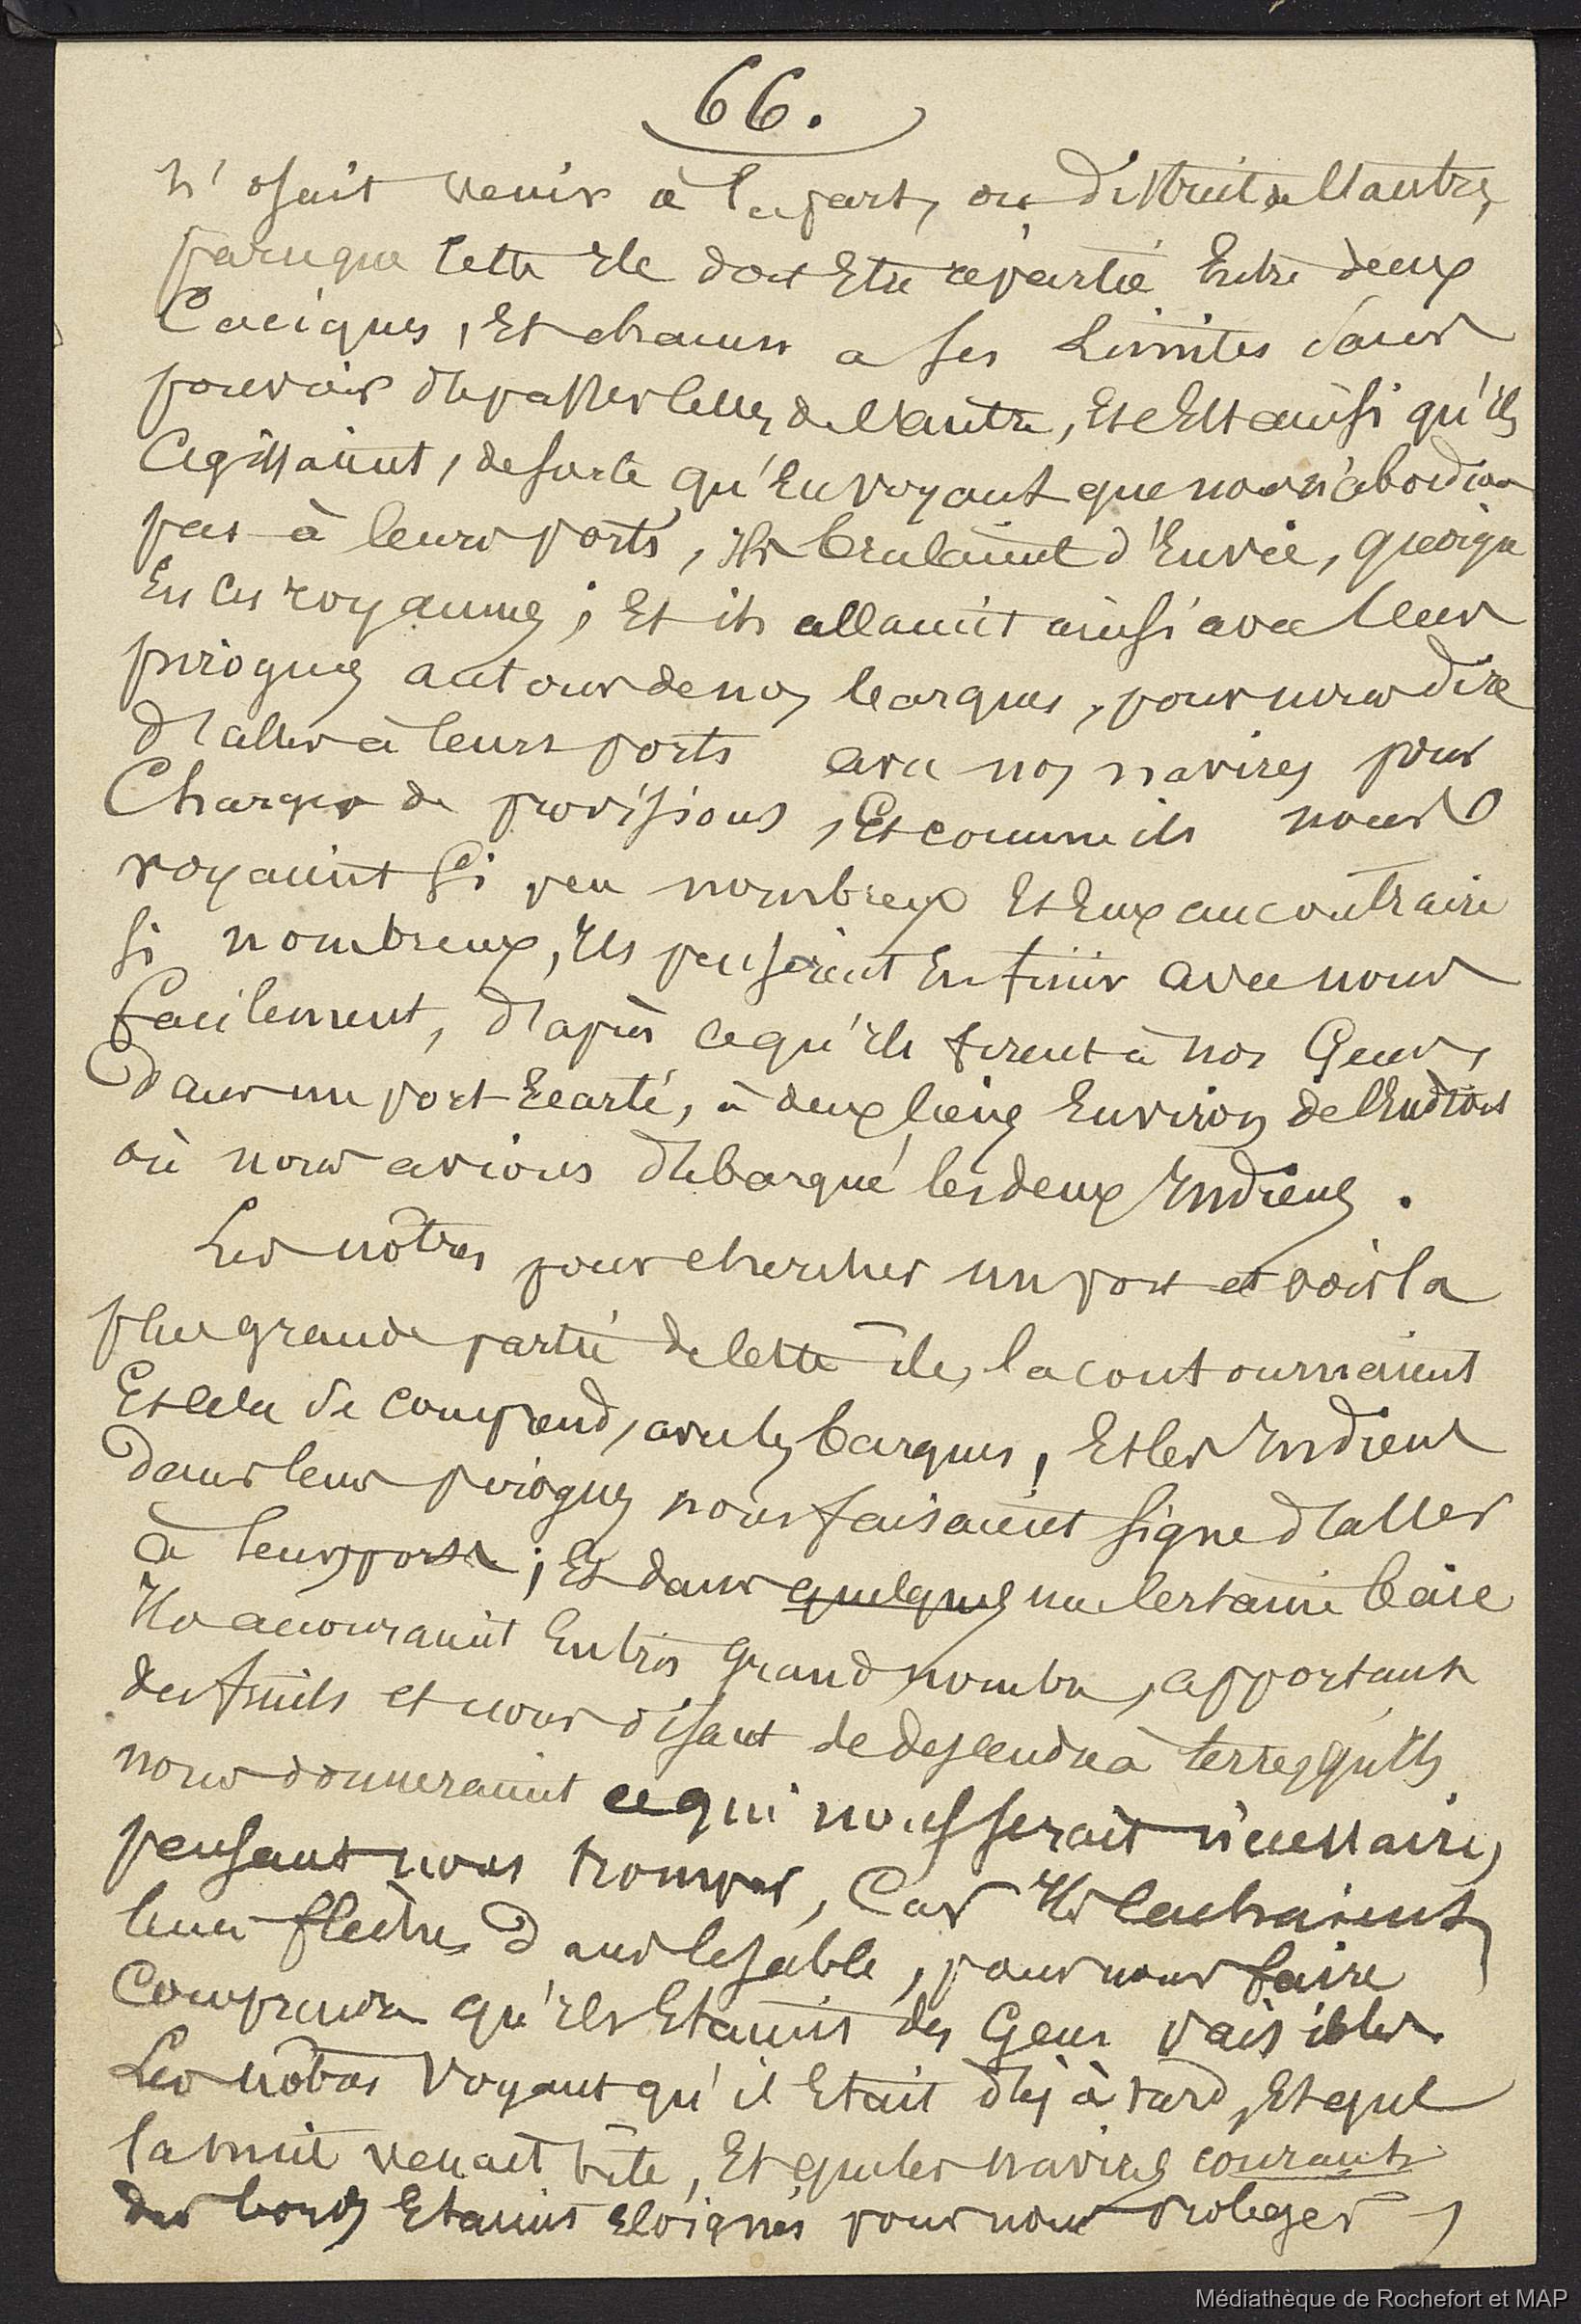 66.
n'osait venir à la part, ou district de l'autre,
parceque cette ile doit etre répartie Entre deux
Caciques, Et chacun a ses Limites sans
pouvoir dépasser celles de l'autre, Et c'Est ainsi qu'ils
agissaient, de sorte qu'En voyant que nous n'abordions
pas à leurs ports, ils brulaient d'Envie, quoique
En ces royaumes; Et ils allaient ainsi avec leurs
pirogues autour de nos barques, pour nous dire
d'aller à leurs ports avec nos navires pour
Charger de provisions, Et comme ils nous
voyaient si peu nombreux Et Eux au contraire
si nombreux, ils penserent En finir avec nous
facilement, d'après ce qu'ils firent à nos Gens,
dans un port Ecarté, à deux lieues Environ de l'Endroit
où nous avions débarqué les deux Indiens.
Les nôtres pour chercher un port et voir la
plus grande partie de cette ile, la contournaient
Et cela se comprend, avec les barques, Et les Indiens
dans leurs pirogues nous faisaient signe d'aller
à leurs ports; Et dans quelques une certaine baie
Ils accouraient En très grand nombre, apportant
des fruits et nous disant de descendre à terre, qu'ils
nous donneraient ce qui nous serait nécessaire,
pensant nous tromper, Car Ils cachaient
leurs flèches dans le sable, pour nous faire
Comprendre qu'ils Etaient des Gens paisibles.
Les nôtres Voyant qu'il Etait déjà tard, Et que
la nuit venait vite, Et que les navires courants
des bords Etaient Eloignés pour nous proteger,
Médiathèque de Rochefort et MAP